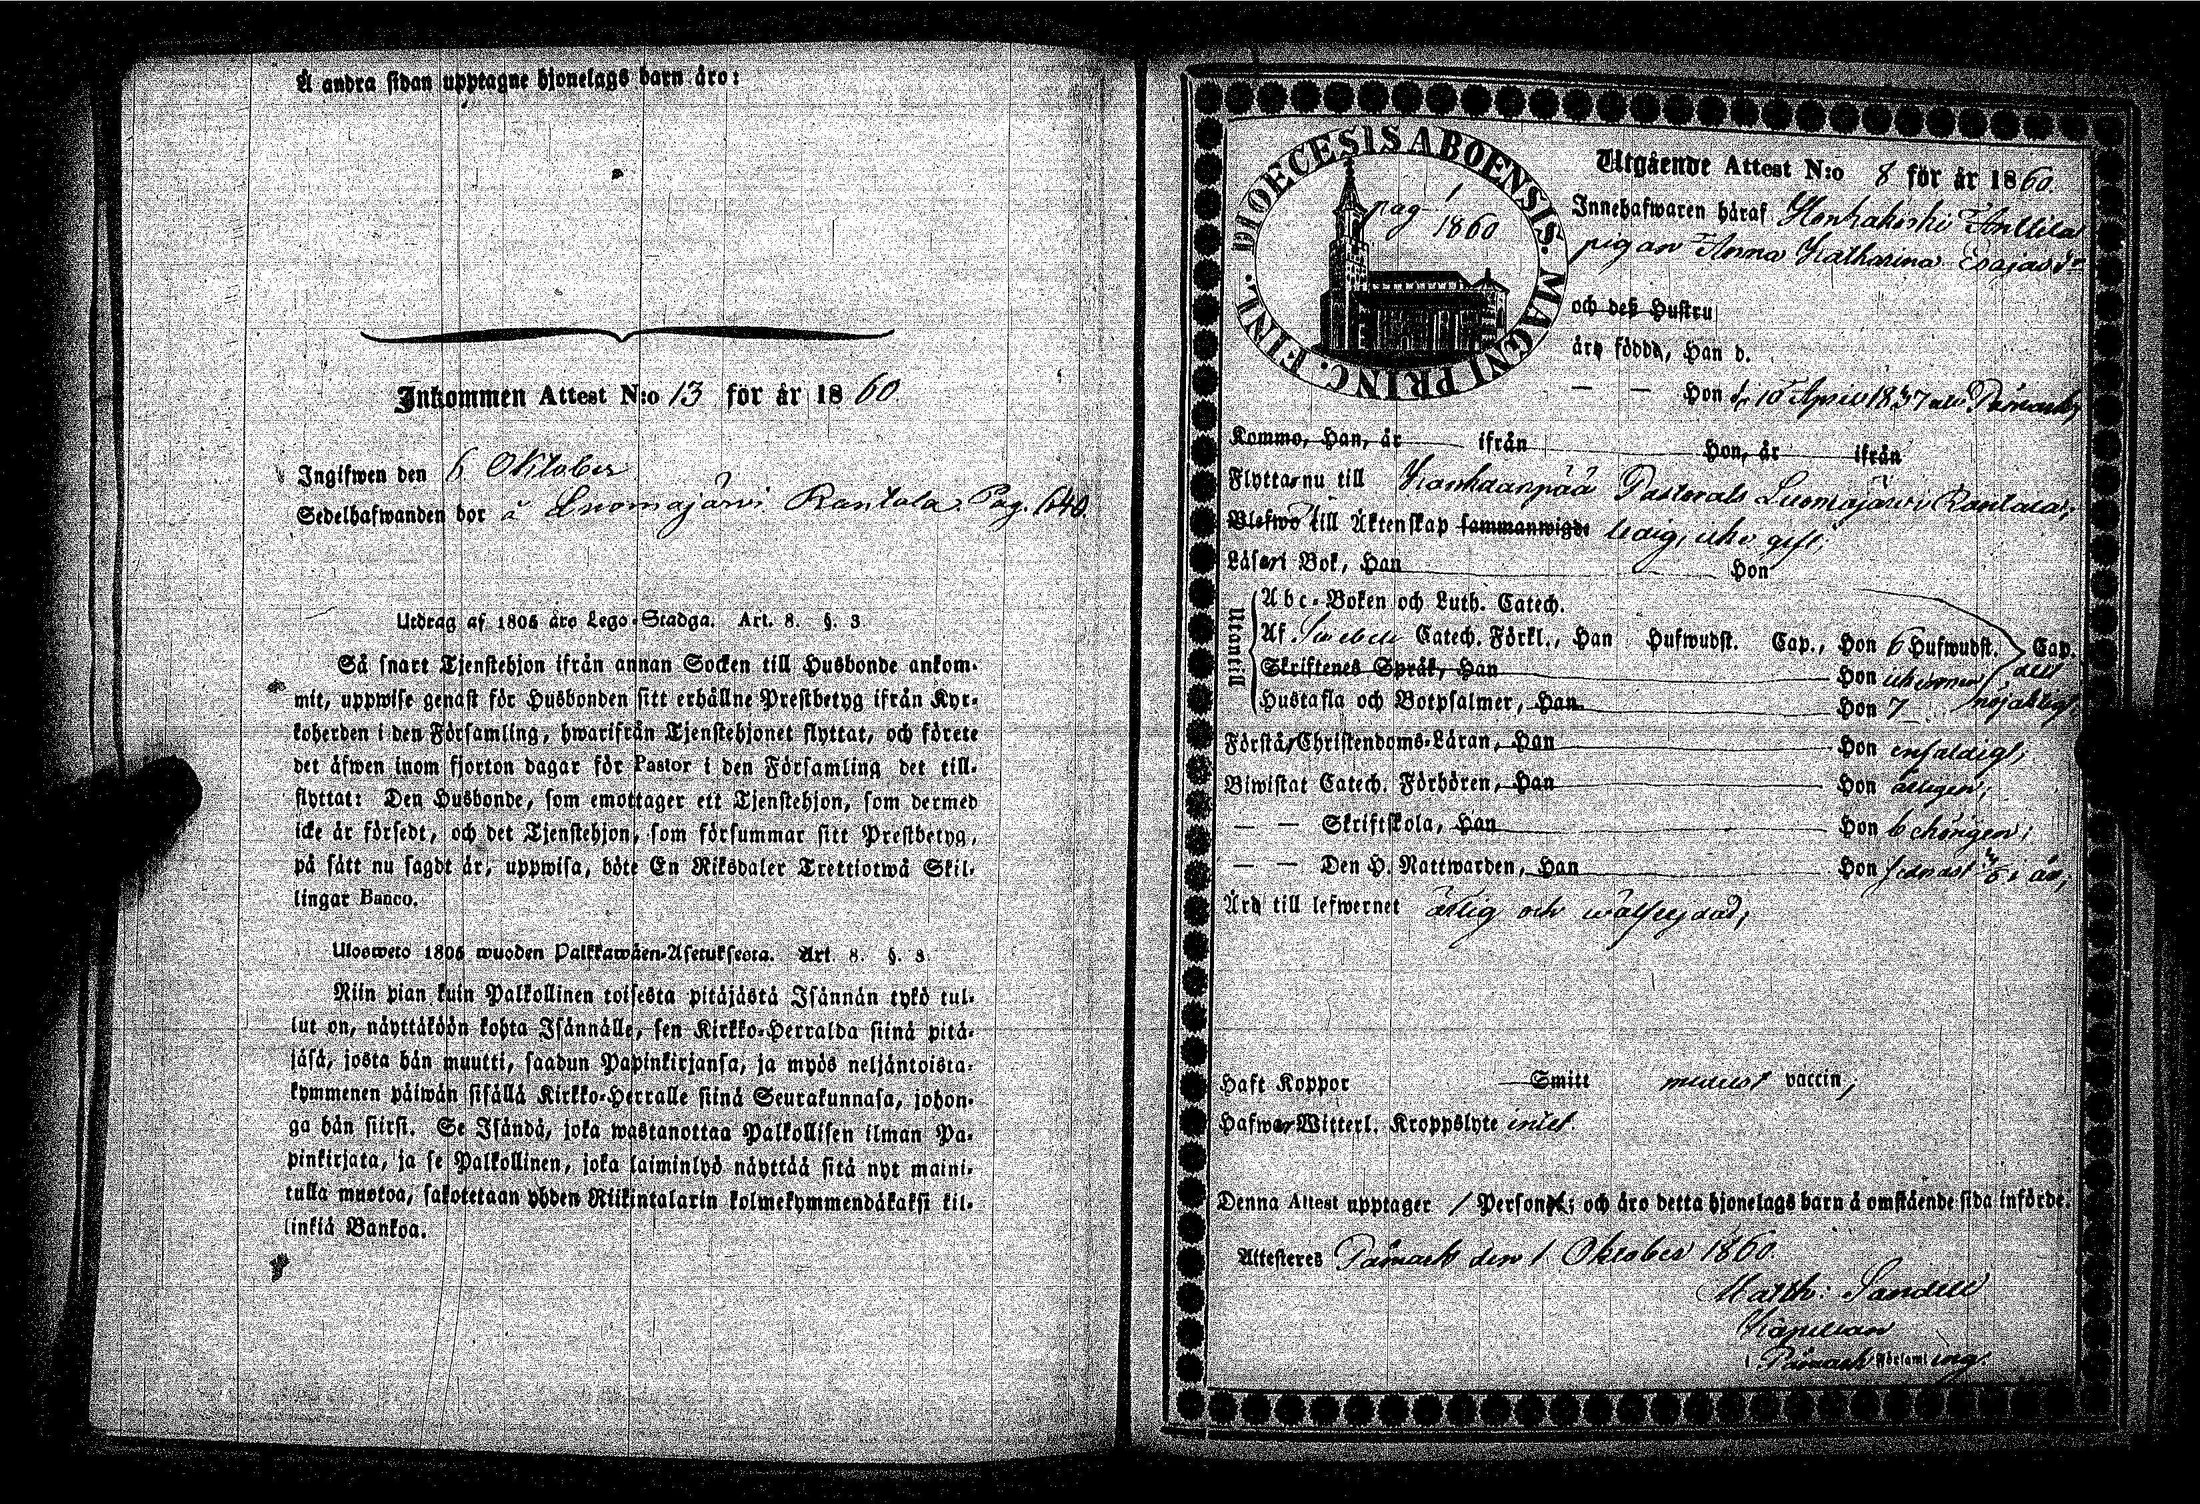 Å andra sidan upptagne hjonelags barn äro:
Inkommen Attest N:o 13 för år 1860.
Ingifwen den 6 Oktober
Sedelhafwanden bor å Luomajärvi Rantala. Pag. 640.
Utdrag af 1805 års Lego-Stadga. Art. 8. §. 3
Så snart Tjenstehjon ifrån annan Socken till Husbonde ankom-
mit, uppwise genast för Husbonden sitt erhållne Prestbetyg ifrån Kyr-
koherden i den Församling, hwarifrån Tjenstehjonet flyttat, och förete
det äfwen inom fjorton dagar för Pastor i den Församling det till-
flyttat: Den Husbonde, som emottager ett Tjenstehjon, som dermed
icke är försedt, och det Tjenstehjon, som försummar sitt Prestbetyg,
på sätt nu sagdt är, uppwisa, böte En Riksdaler Trettiotwå Skil-
lingar Banco.
Ulosweto 1805 wuoden Palkkawäen-Asetuksesta. Art. 8. §. 3.
Niin pian kuin Palkollinen toisesta pitäjästä Isännän tykö tul-
lut on, näyttäköön kohta Isännälle, sen Kirkko-Herralda siinä pitä-
jäsä, josta hän muutti, saadun Papinkirjansa, ja myös neljäntoista-
kymmenen päiwän sisällä Kirkko-Herralle siinä Seurakunnasa, johon-
ga hän siirsi. Se Isändä, joka wastanottaa Palkollisen ilman Pa-
pinkirjata, ja se Palkollinen, joka laiminlyö näyttää sitä nyt maini-
tulla muotoa, sakotetaan yhden Riikintalarin kolmekymmendäkaksi kil-
linkiä Bankoa.
DIOECESIS ABOENSIS. MAGNI PRINC. FINL.
pag 1
1860
Utgående Attest N:o 8 för år 1860.
Innehafwaren häraf Honkakoski Anttila
pigan Anna Katharina Esajasdr
och deß Hustru
äro födde, Han d.
— — Hon d. 10 April 1837 Påmark,
Kommo, Han, år ifrån Hon, år ifrån
Flyttar nu till Kankaanpää Pastorats Luomajärvi Rantala;
Blefwo till Äktenskap sammanwigde ledig, icke gift;
Läser i Bok, Han Hon
Utantill
Abc-Boken och Luth. Catech.
Af Swebelii Catech. Förkl., Han Hufwudst. Cap., Hon 6 Hufwudst. Cap.
Skriftenes Språk, Han Hon allt
Hustafla och Botpsalmer, Han Hon 7 nöjaktigt.
Förstår Christendoms-Läran, Han Hon enfaldigt;
Biwistat Catech. Förhören, Han Hon årligen;
— — Skriftskola, Han Hon behörigen;
— — Den H. Nattwarden, Han Hon sednast i år;
Är till lefwernet ärlig och wälfrejdad;
Haft Koppor Smitt medelst vaccin;
Hafwer Witterl. Kroppslyte intet.
Denna Attest upptager 1 Person; och äro detta hjonelags barn å omstående sida införde.
Attesteres Påmark den 1 Oktober 1860.
Matth: Sandell
Kapellan
i Påmark Församling.